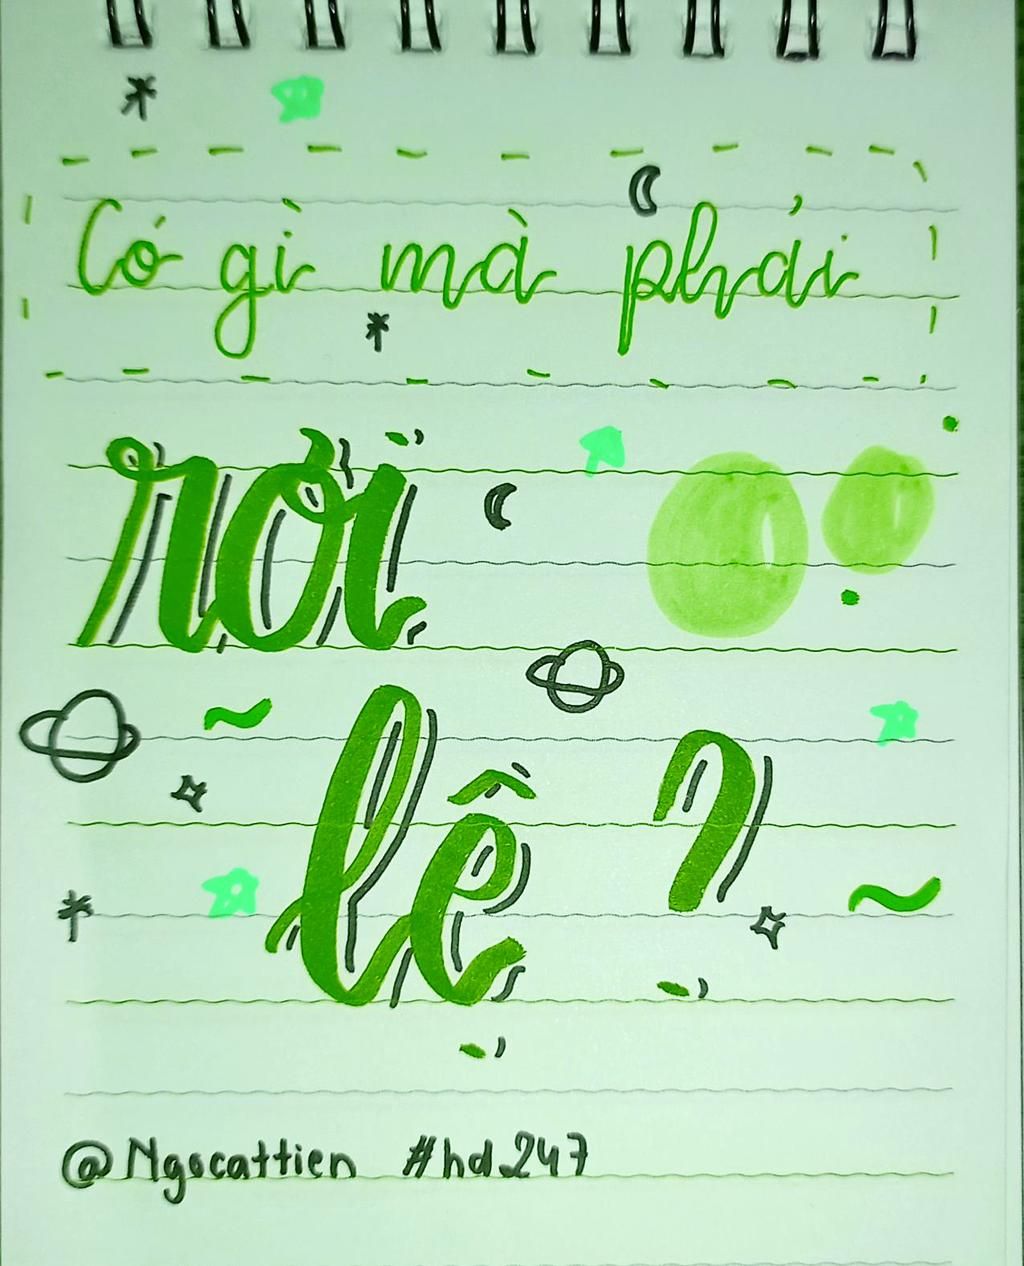 Có gì mà phải
rơi
lệ ?
@Ngocattien #hd247